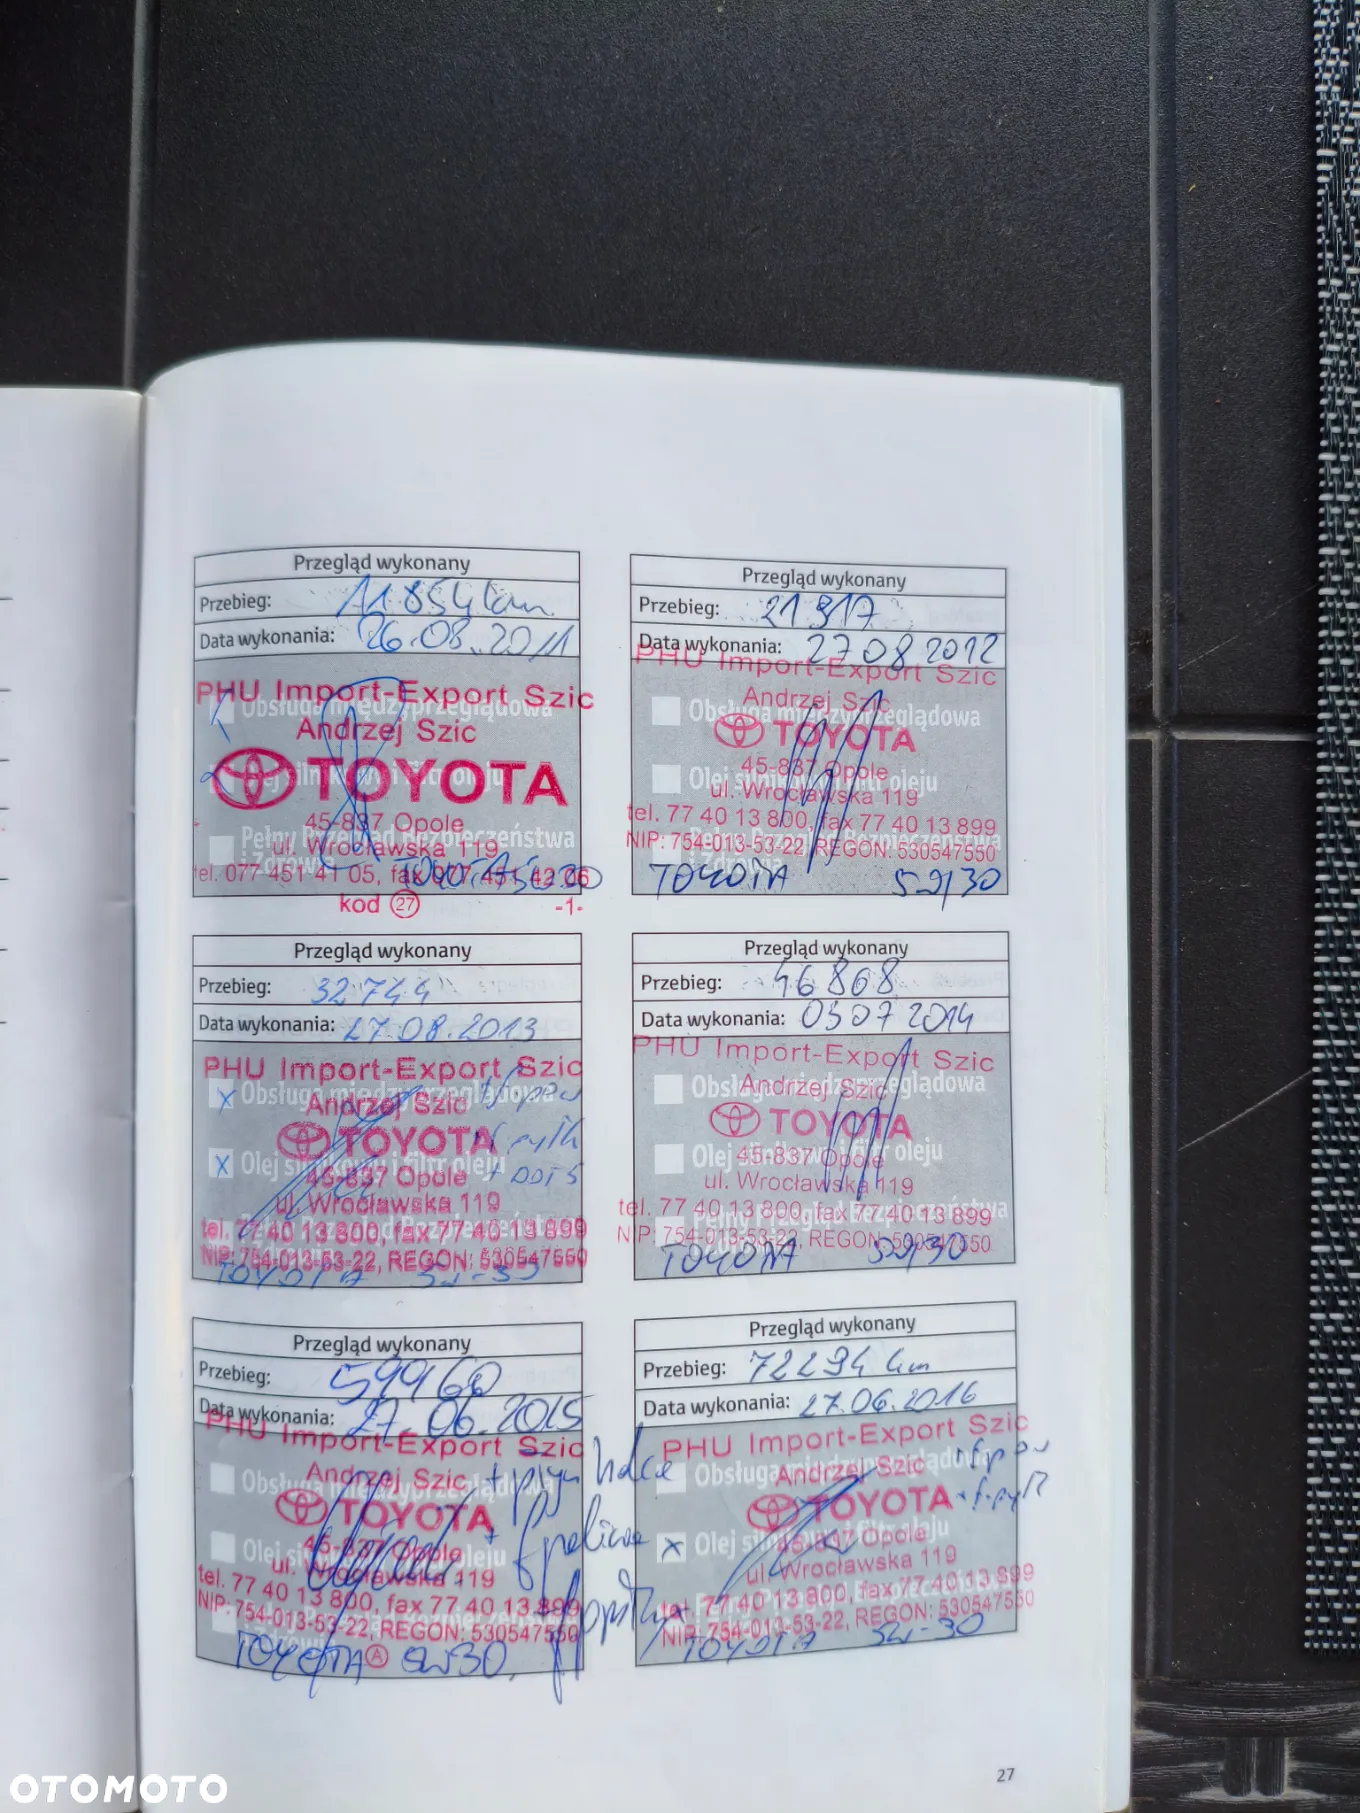 Przegląd wykonany
Przebieg: 11.854 km
Data wykonania: 26.08.2011
PHU Import-Export Szic
Obsługa międzyprzeglądowa
Andrzej Szic
TOYOTA
45-837 Opole
Pełny Przegląd Bezpieczeństwa
ul. Wrocławska 119
i Zdrowia
tel. 077 451 41 05, fax 077 451 42 06
kod 27 -1-
Przegląd wykonany
Przebieg: 21 917
Data wykonania: 27 08 2012
PHU Import-Export Szic
Andrzej Szic
Obsługa międzyprzeglądowa
TOYOTA
45-837 Opole
Olej silnikowy i filtr oleju
ul. Wrocławska 119
tel. 77 40 13 800, fax 77 40 13 899
Pełny Przegląd Bezpieczeństwa
NIP: 754-013-53-22, REGON: 530547550
i Zdrowia
TOYOTA 5W/30
Przegląd wykonany
Przebieg: 32 744
Data wykonania: 27.08.2013
PHU Import-Export Szic
x Obsługa międzyprzeglądowa
Andrzej Szic
TOYOTA
x Olej silnikowy i filtr oleju
45-837 Opole
ul. Wrocławska 119
tel. 77 40 13 800, fax 77 40 13 899
NIP: 754-013-53-22, REGON: 530547550
TOYOTA 5W-30
Przegląd wykonany
Przebieg: 46 868
Data wykonania: 03 07 2014
PHU Import-Export Szic
Obsługa międzyprzeglądowa
Andrzej Szic
TOYOTA
Olej silnikowy i filtr oleju
45-837 Opole
ul. Wrocławska 119
tel. 77 40 13 800, fax 77 40 13 899
Pełny Przegląd Bezpieczeństwa
NIP: 754-013-53-22, REGON: 530547550
TOYOTA 5W/30
Przegląd wykonany
Przebieg:
Data wykonania: 27.06.2015
PHU Import-Export Szic
Obsługa międzyprzeglądowa
Andrzej Szic
TOYOTA
Olej silnikowy i filtr oleju
45-837 Opole
ul. Wrocławska 119
tel. 77 40 13 800, fax 77 40 13 899
NIP: 754-013-53-22, REGON: 530547550
TOYOTA A 5W30
Przegląd wykonany
Przebieg: 72294 km
Data wykonania: 27.06.2016
PHU Import-Export Szic
Obsługa międzyprzeglądowa
Andrzej Szic
TOYOTA
x Olej silnikowy i filtr oleju
45-837 Opole
ul. Wrocławska 119
tel. 77 40 13 800, fax 77 40 13 899
NIP: 754-013-53-22, REGON: 530547550
TOYOTA 5W-30
27
OTOMOTO